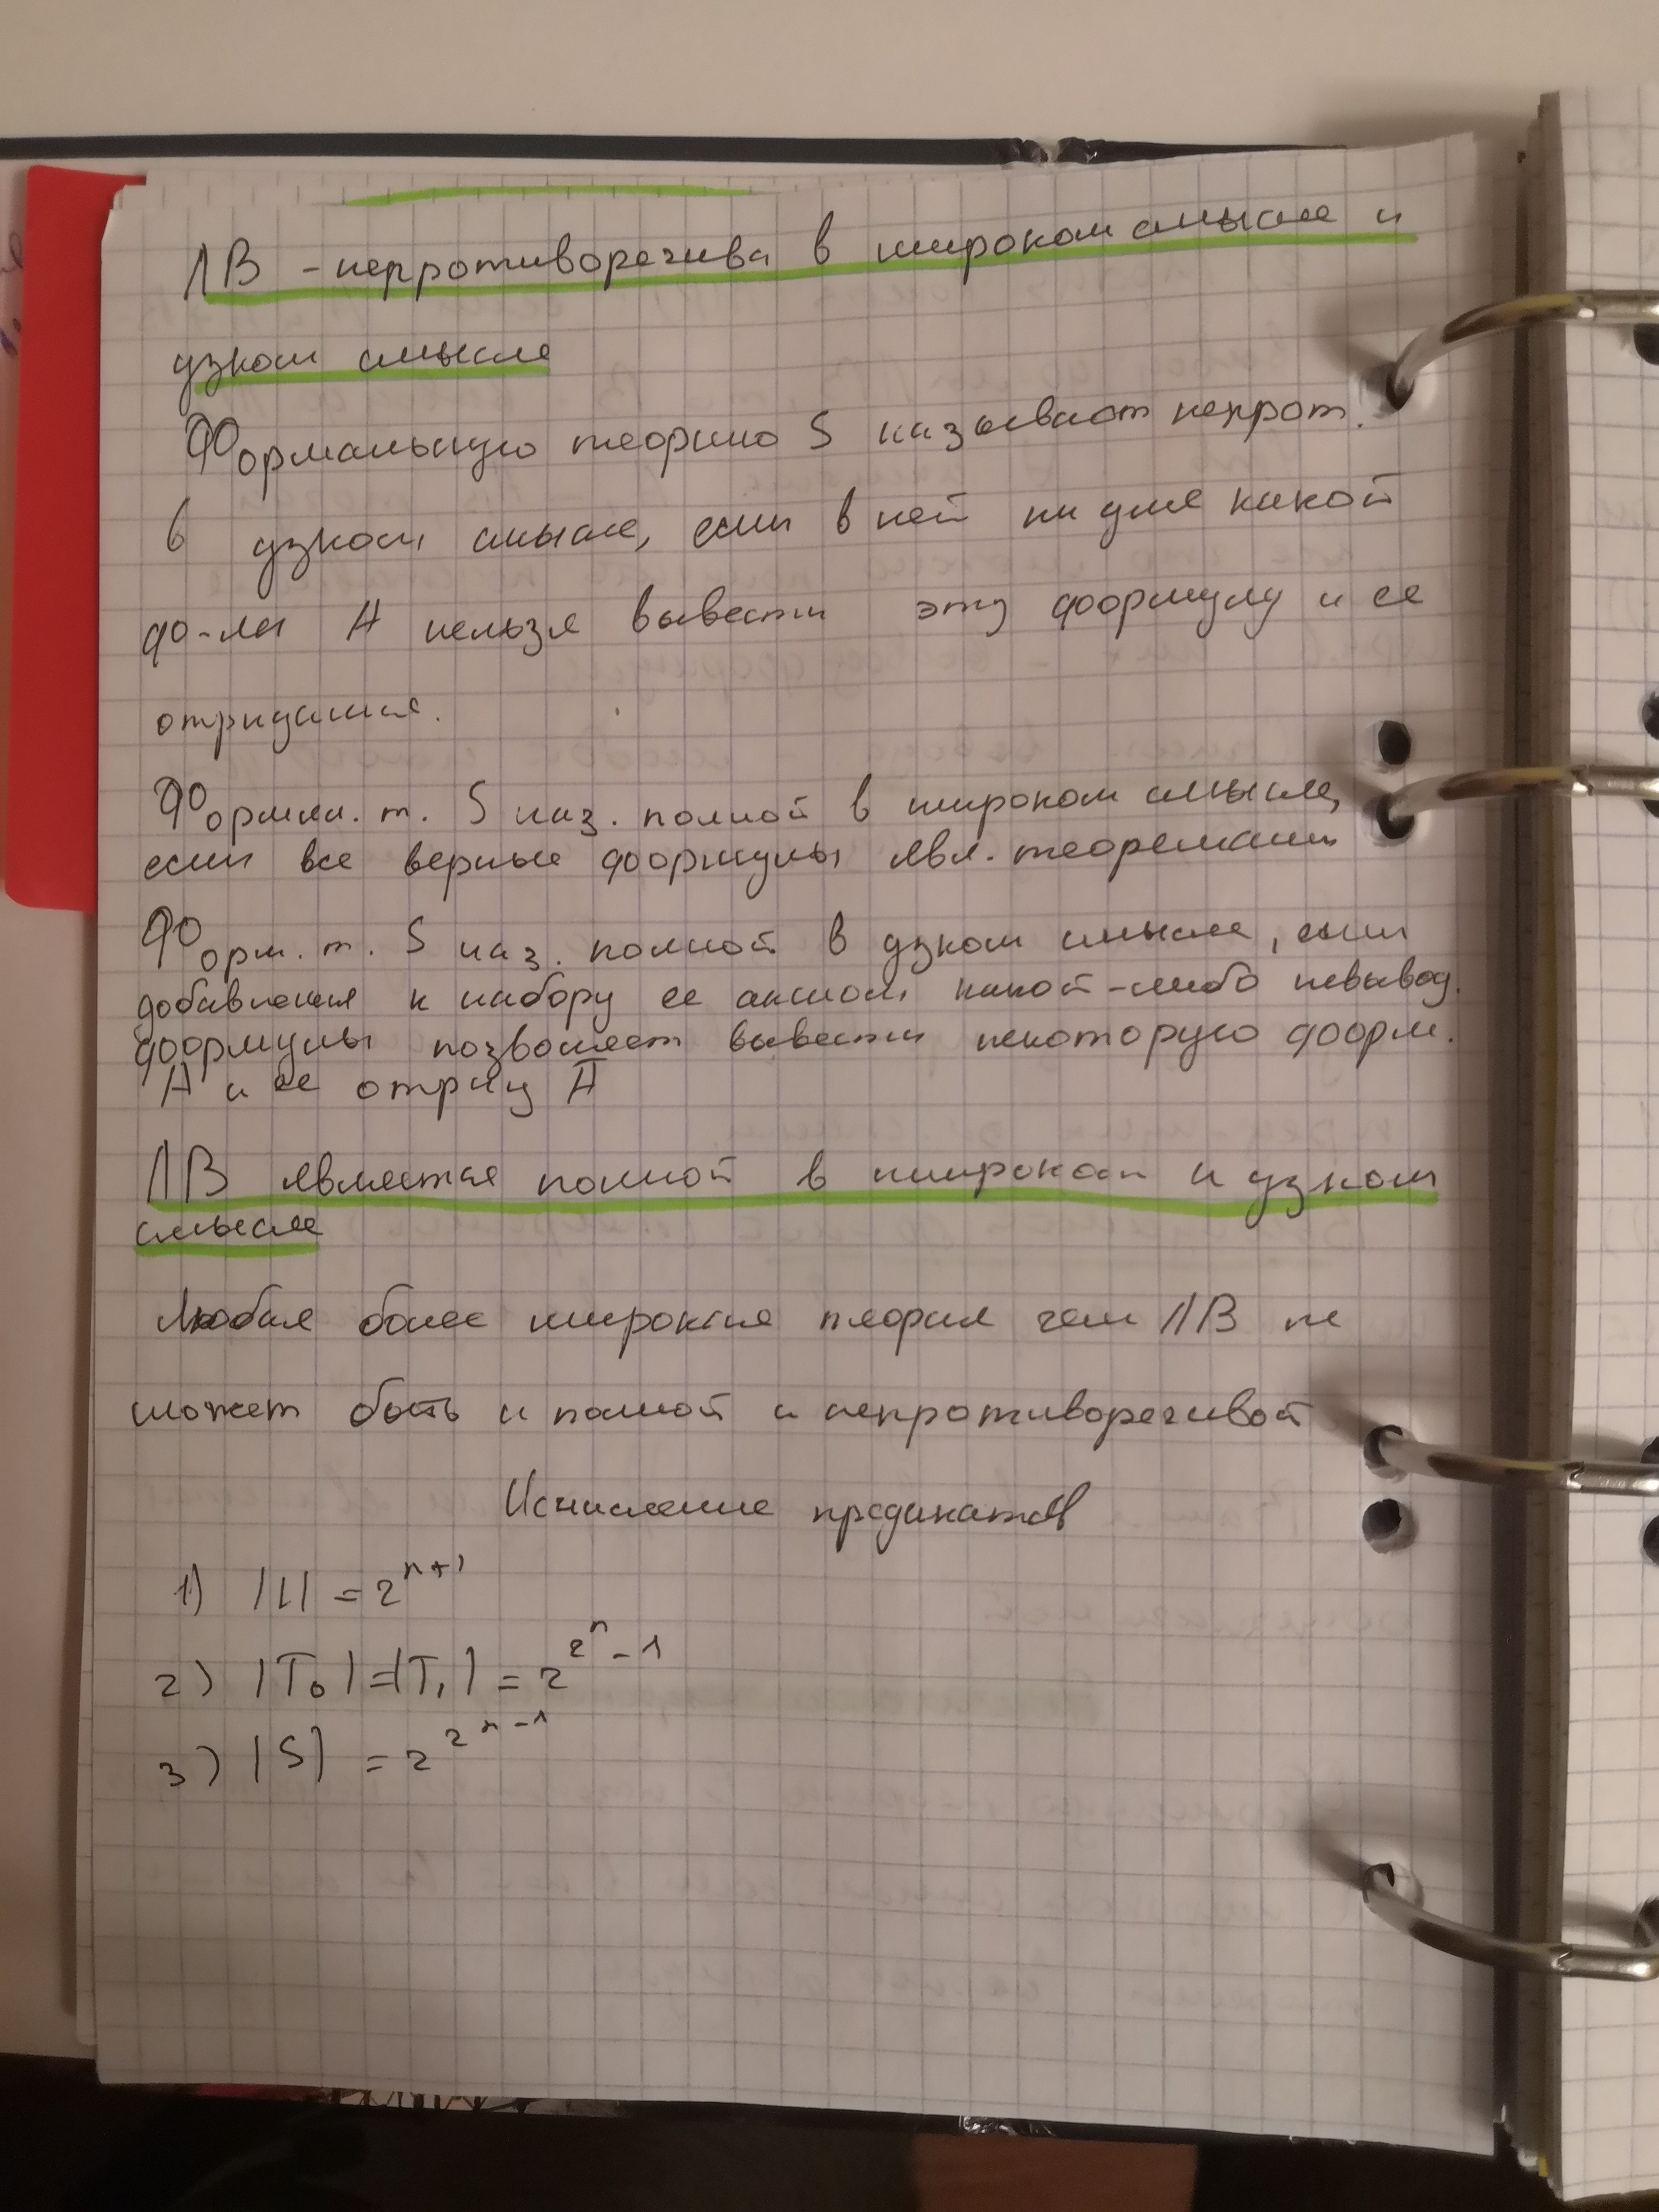 ЛВ - непротиворечива в широком смысле и
узком смысле
Формальную теорию S называют непрот.
в узком смысле, если в ней ни для какой
ф-лы А нельзя вывести эту формулу и ее
отрицание.
Формал. т. S наз. полной в широком смысле,
если все верные формулы явл. теоремами
Форм. т. S наз. полной в узком смысле, если
добавления к набору ее аксиом какой-либо невывод.
формулы позволяет вывести некоторую форм.
А и ее отриц А̅
ЛВ является полной в широком и узком
смысле
Любая более широкая теория чем ЛВ не
может быть и полной и непротиворечивой
Исчисление предикатов
1) |L| = 2^{n+1}
2) |T₀| = |T₁| = 2^{2^n - 1}
3) |S| = 2^{2^{n-1}}